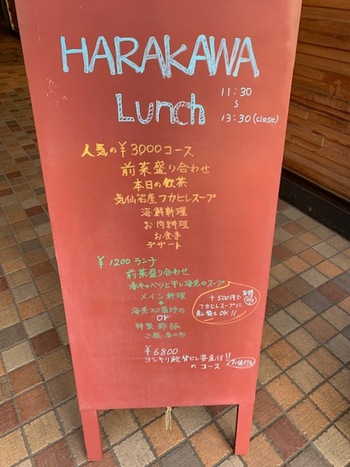 HARAKAWA
Lunch
11:30
〜
13:30 (close)
人気の¥3000コース
前菜盛り合わせ
本日の飲茶
気仙沼産フカヒレスープ
海鮮料理
お肉料理
お食事
デザート
¥1200ランチ
前菜盛り合わせ
春キャベツと干し海老のスープ
メイン料理
海老XO醤炒め
or
特製酢豚
+500円で
フカヒレスープに
変更もOK!!
¥6800
ヨシキリ鮫
のコース